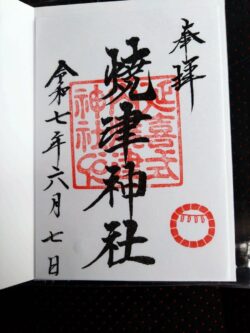 奉拝
焼津神社
令和七年六月七日
延喜式